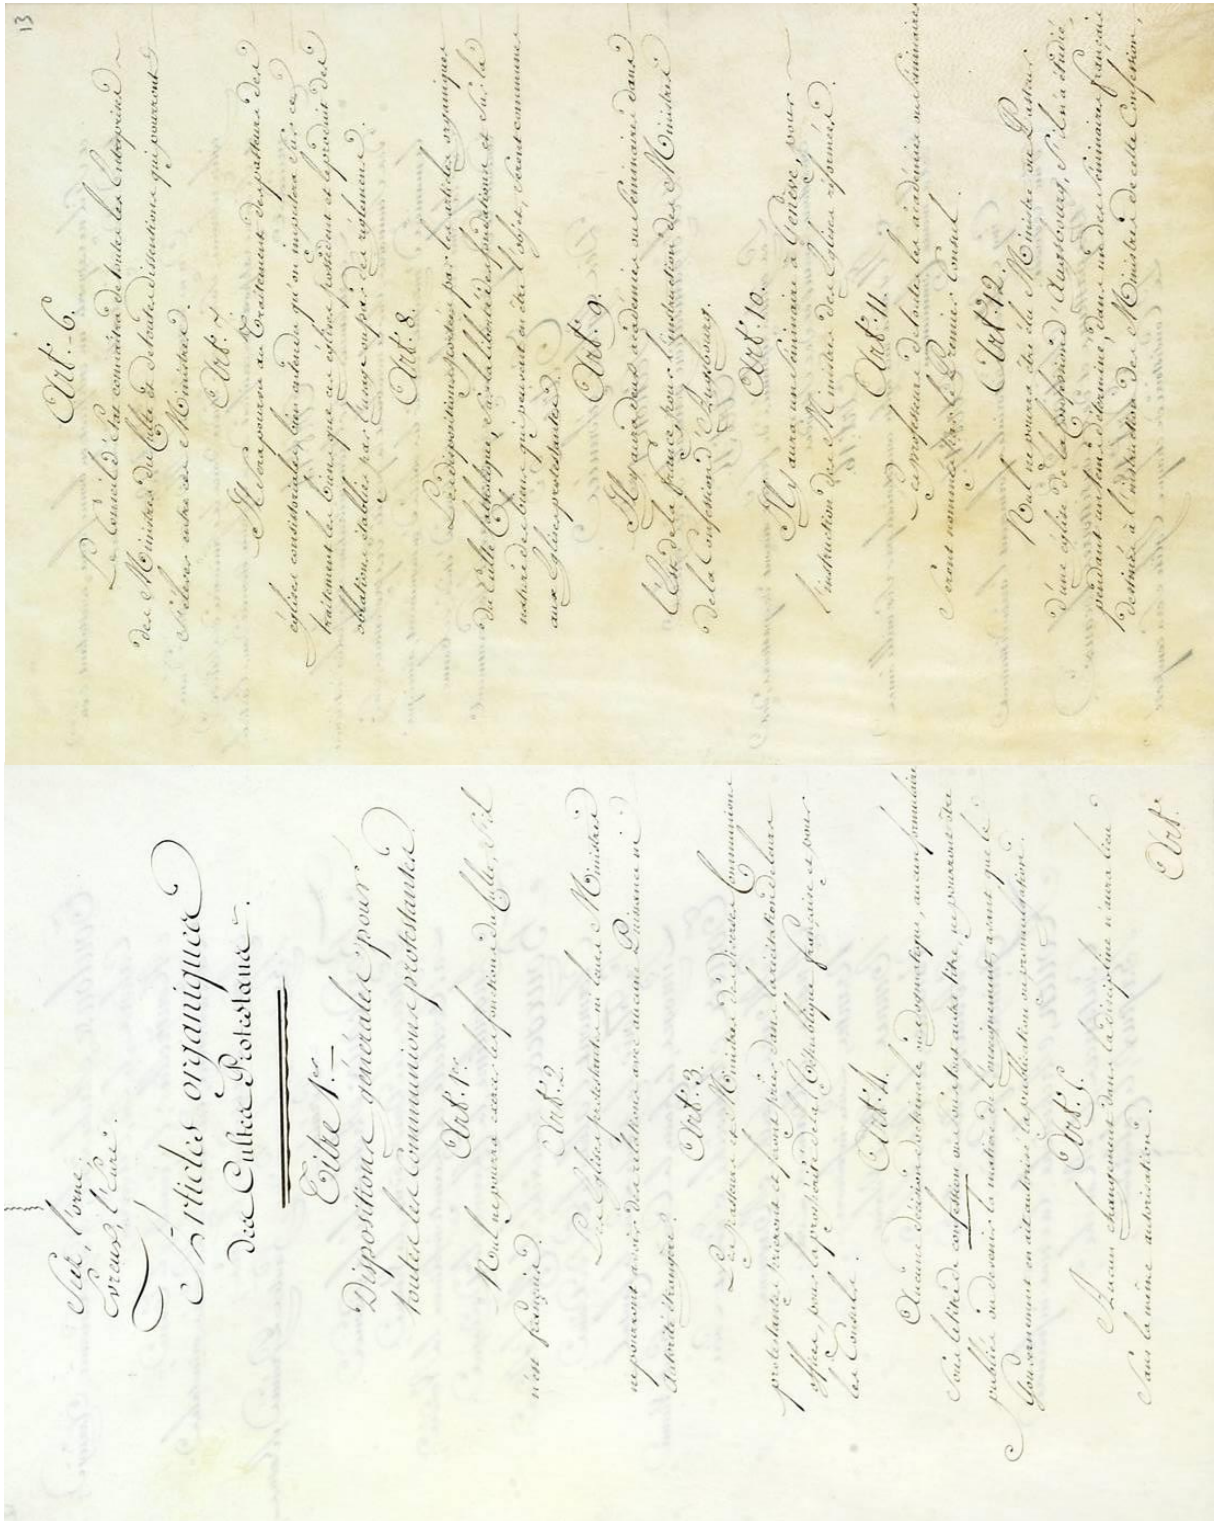 Sées, l'orne.
Evreux, l'Eure.
Articles organiques
des Cultes Protestans.
Titre 1er.
Dispositions générales pour
toutes les Communions protestantes.
Art. 1er
Nul ne pourra exercer les fonctions du Culte, s'il
n'est français.
Art. 2.
Les Eglises protestantes ni leurs Ministres
ne pourront avoir des relations avec aucune Puissance ni
Autorité étrangère.
Art. 3.
Les pasteurs et Ministres des diverses Communions
protestantes prieront et feront prier dans la récitation de leurs
offices, pour la prospérité de la République française et pour
les Consuls.
Art. 4.
Aucune décision doctrinale ou dogmatique, aucun formulaire
sous le titre de confession ou sous tout autre titre, ne pourront être
publiés ou devenir la matière de l'enseignement, avant que le
Gouvernement en ait autorisé la publication ou promulgation.
Art. 5.
Aucun changement dans la discipline n'aura lieu
sans la même autorisation.
Art.
13
Art. 6.
Le Conseil d'état connaîtra de toutes les Entreprises
des Ministres du Culte & de toutes dissentions qui pourront
s'élever entre ces Ministres.
Art. 7.
Il sera pourvu au Traitement des pasteurs des
églises consistoriales, bien entendu qu'on imputera sur ce
traitement les biens que ces églises possèdent et le produit des
oblations établies par l'usage ou par des réglemens.
Art. 8.
Les dispositions portées par les articles organiques
du Culte Catholique, sur la liberté des fondations et sur la
nature des biens qui peuvent en être l'objet, seront communes
aux Eglises protestantes.
Art. 9.
Il y aura deux académies ou Séminaires dans
l'Est de la france, pour l'instruction des Ministres
de la Confession d'Augsbourg.
Art. 10.
Il y aura un Séminaire à Genève, pour
l'instruction des Ministres des Eglises réformées.
Art. 11.
Les professeurs de toutes les académies ou Séminaires
seront nommés par le Premier Consul.
Art. 12.
Nul ne pourra être élu Ministre ou Pasteur
d'une église de la confession d'Augsbourg, S'il n'a étudié,
pendant un tems déterminé, dans un des Séminaires français
destinés à l'instruction des Ministres de cette Confession,